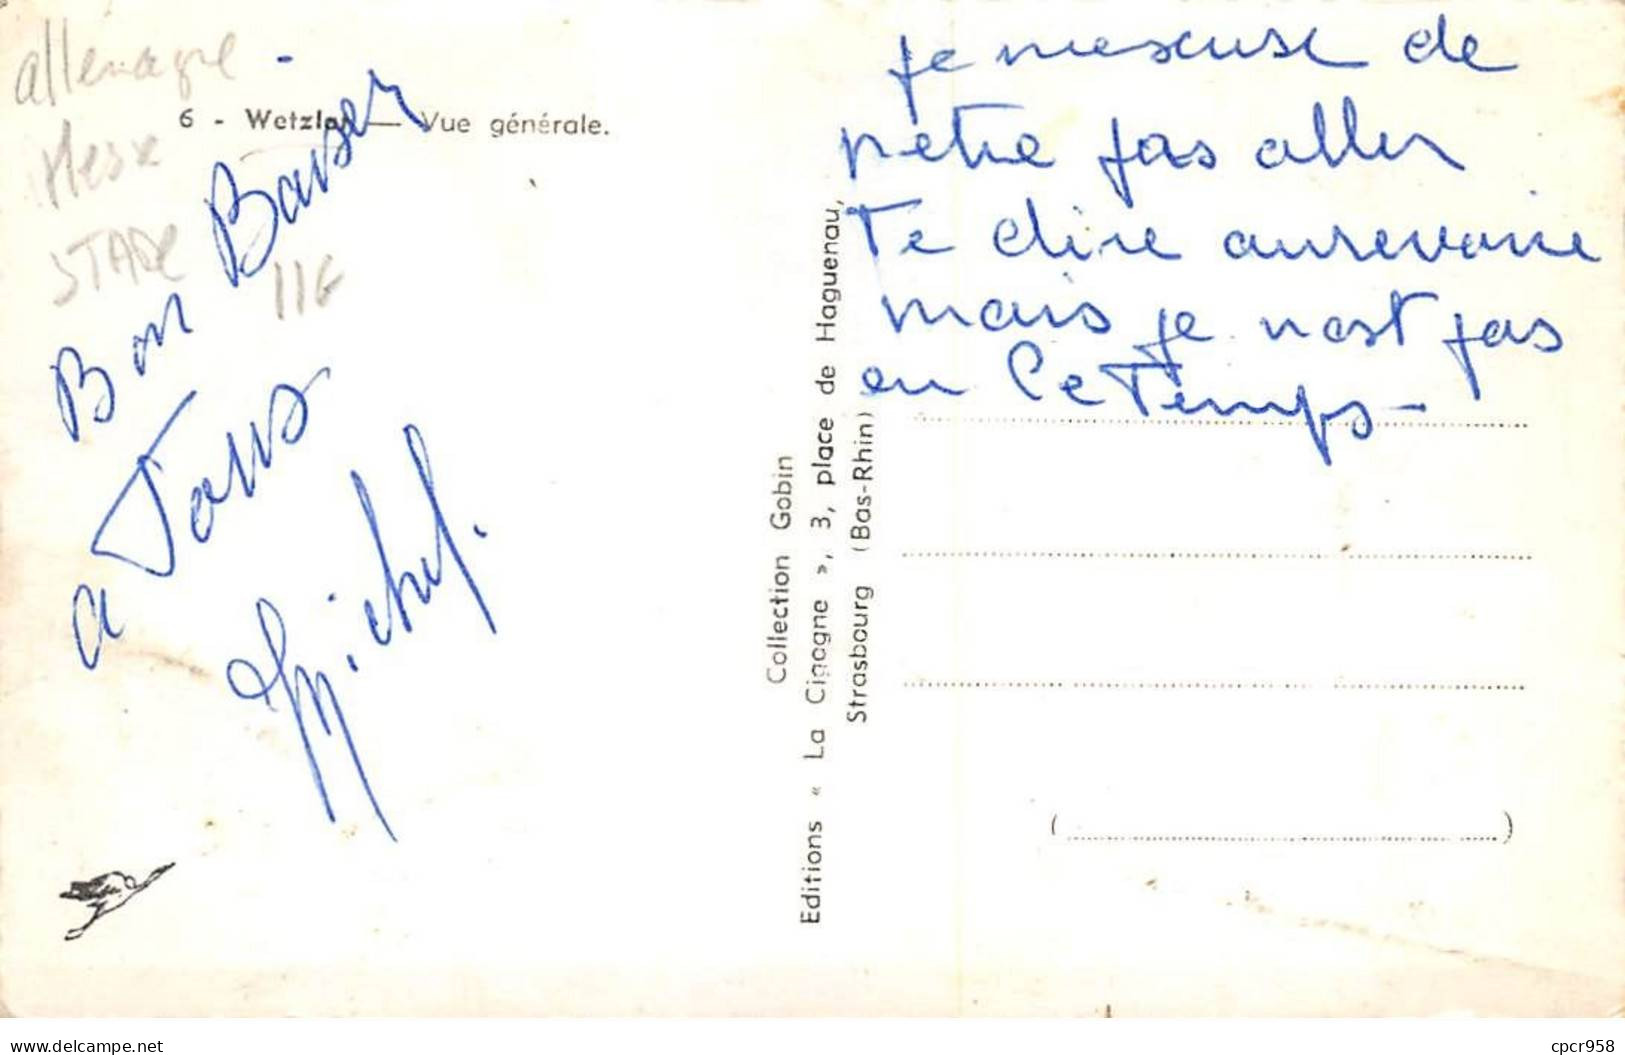 allemagne
Hesse
STADE
116
6 - Wetzlar — Vue générale.
Bon Baiser
a Tous
Michel.
je mescuse de
petre pas aller
Te dire aurevoire
mais je nest pas
eu le Temps -
Collection Gobin
Editions « La Cigogne », 3, place de Haguenau,
Strasbourg (Bas-Rhin)
( )
www.delcampe.net
cpcr958